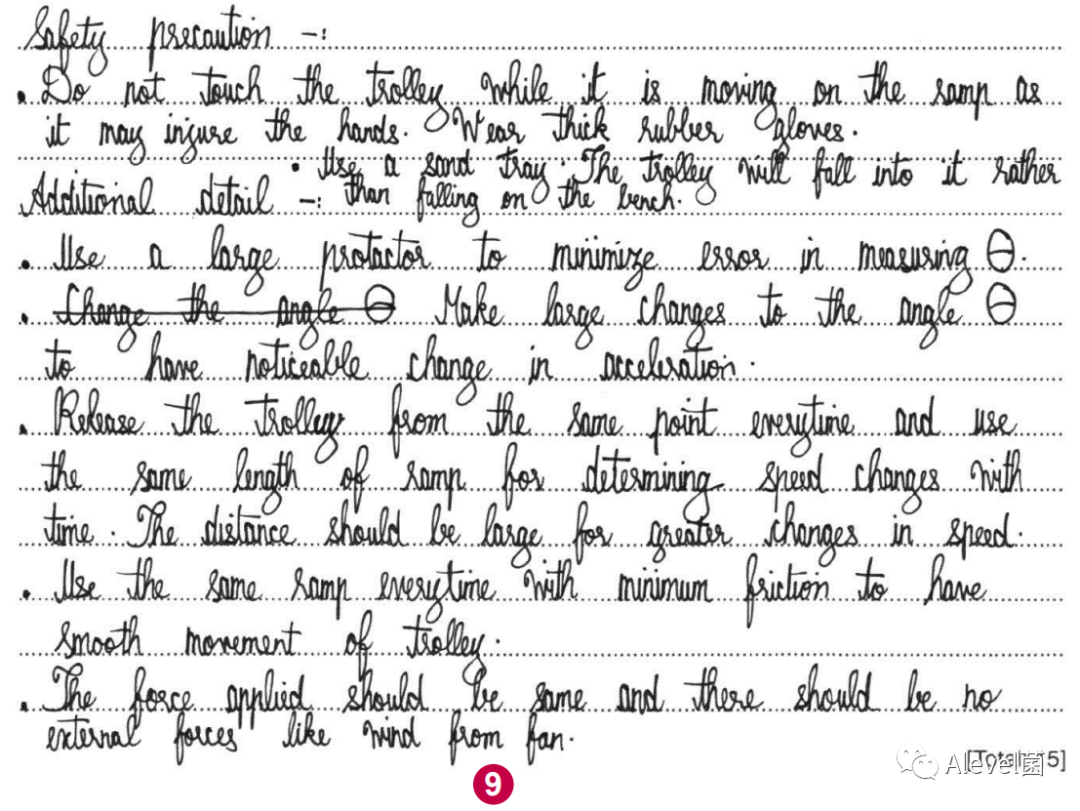 Safety precaution -:
• Do not touch the trolley while it is moving on the ramp as
it may injure the hands. Wear thick rubber gloves.
• Use a sand tray. The trolley will fall into it rather
than falling on the bench.
Additional detail -:
• Use a large protactor to minimize error in measuring θ.
• Change the angle θ Make large changes to the angle θ
to have noticeable change in acceleration.
• Release the trolley from the same point everytime and use
the same length of ramp for determining speed changes with
time. The distance should be large for greater changes in speed.
• Use the same ramp everytime with minimum friction to have
smooth movement of trolley.
• The force applied should be same and there should be no
external forces like wind from fan.
[Total: 5]
Alevel菌
9